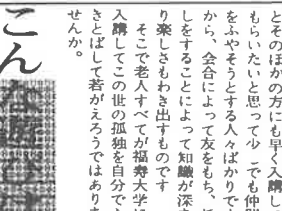 とそのほかの方にも早く入講し
もらいたいと思って少　でも仲間
をふやそうとする人々ばかりで
から、会合によって友をもち、
しをすることによって知識が深
り楽しさもわき出すものです
そこで老人すべてが福寿大学
入講してこの世の孤独を自分で
きとばして若がえろうではあり
せんか。
こん